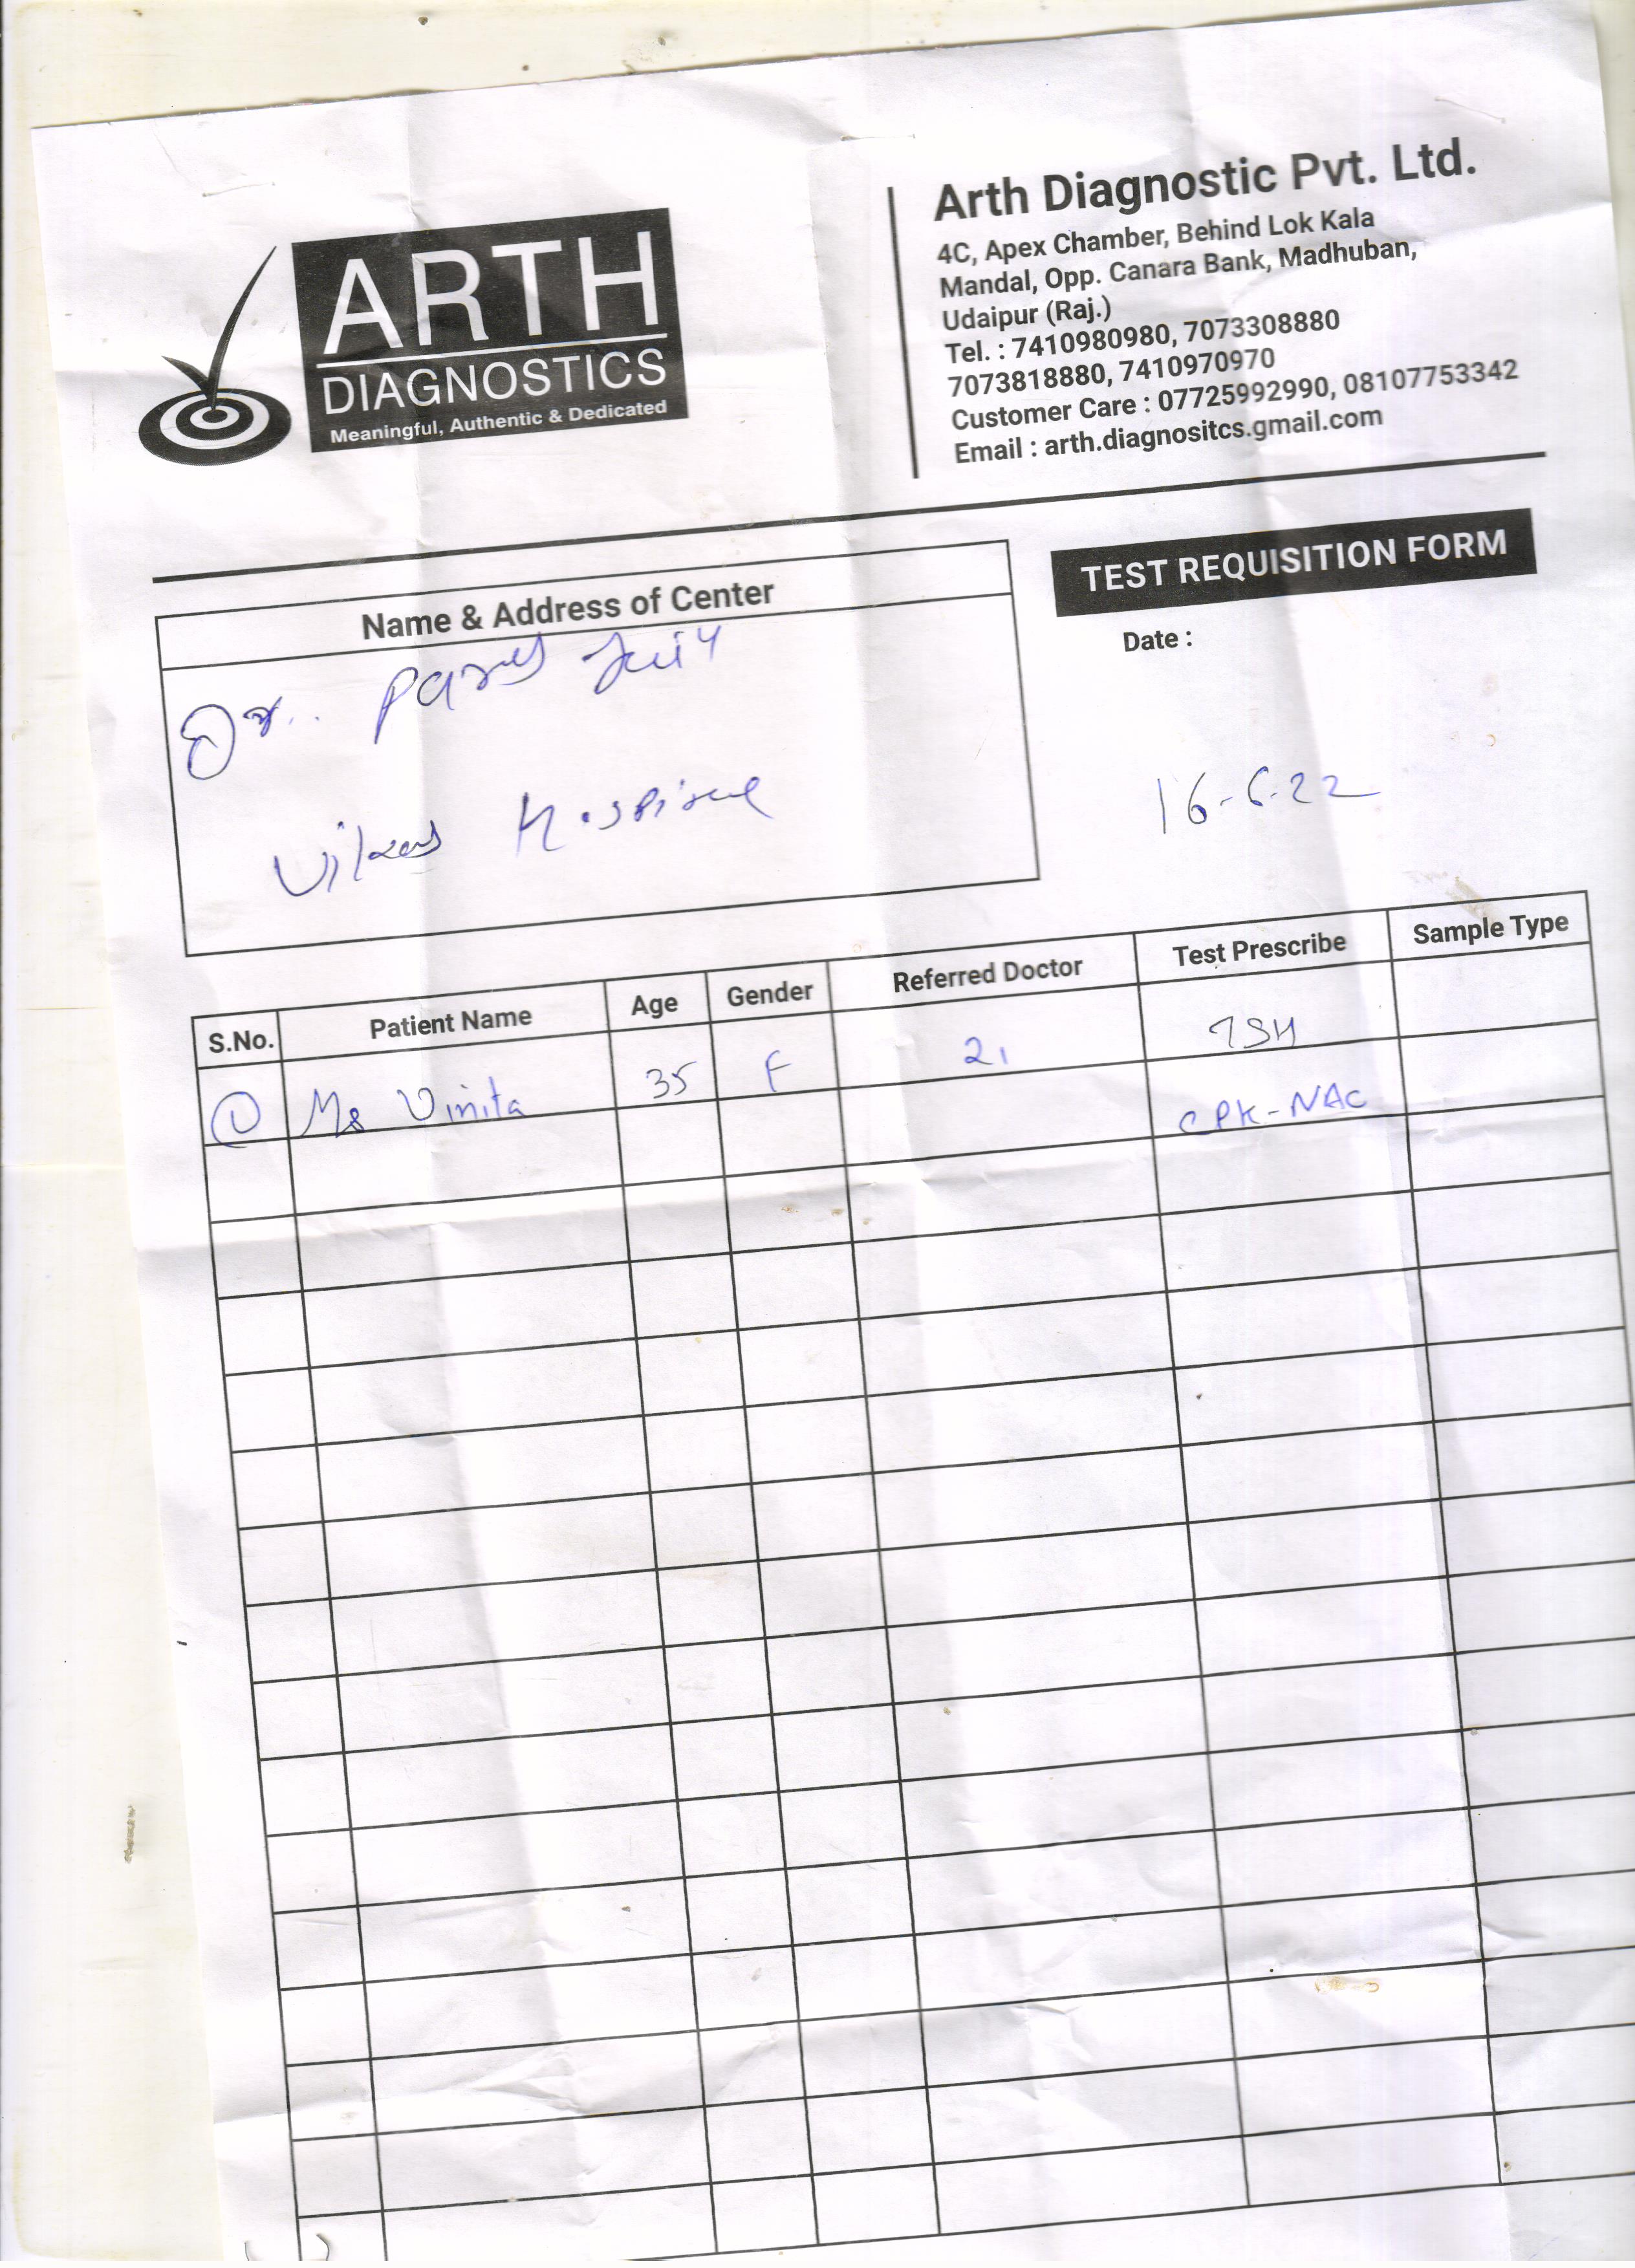 ARTH
DIAGNOSTICS
Meaningful, Authentic & Dedicated
Arth Diagnostic Pvt. Ltd.
4C, Apex Chamber, Behind Lok Kala
Mandal, Opp. Canara Bank, Madhuban,
Udaipur (Raj.)
Tel. : 7410980980, 7073308880
7073818880, 7410970970
Customer Care : 07725992990, 08107753342
Email : arth.diagnositcs.gmail.com
TEST REQUISITION FORM
Name & Address of Center
Date :
Dr.. Paras
Vikas Hospital
16-6-22
S.No. Patient Name Age Gender Referred Doctor Test Prescribe Sample Type
1 Ms Vinita 35 F TSH
CPK-NAC